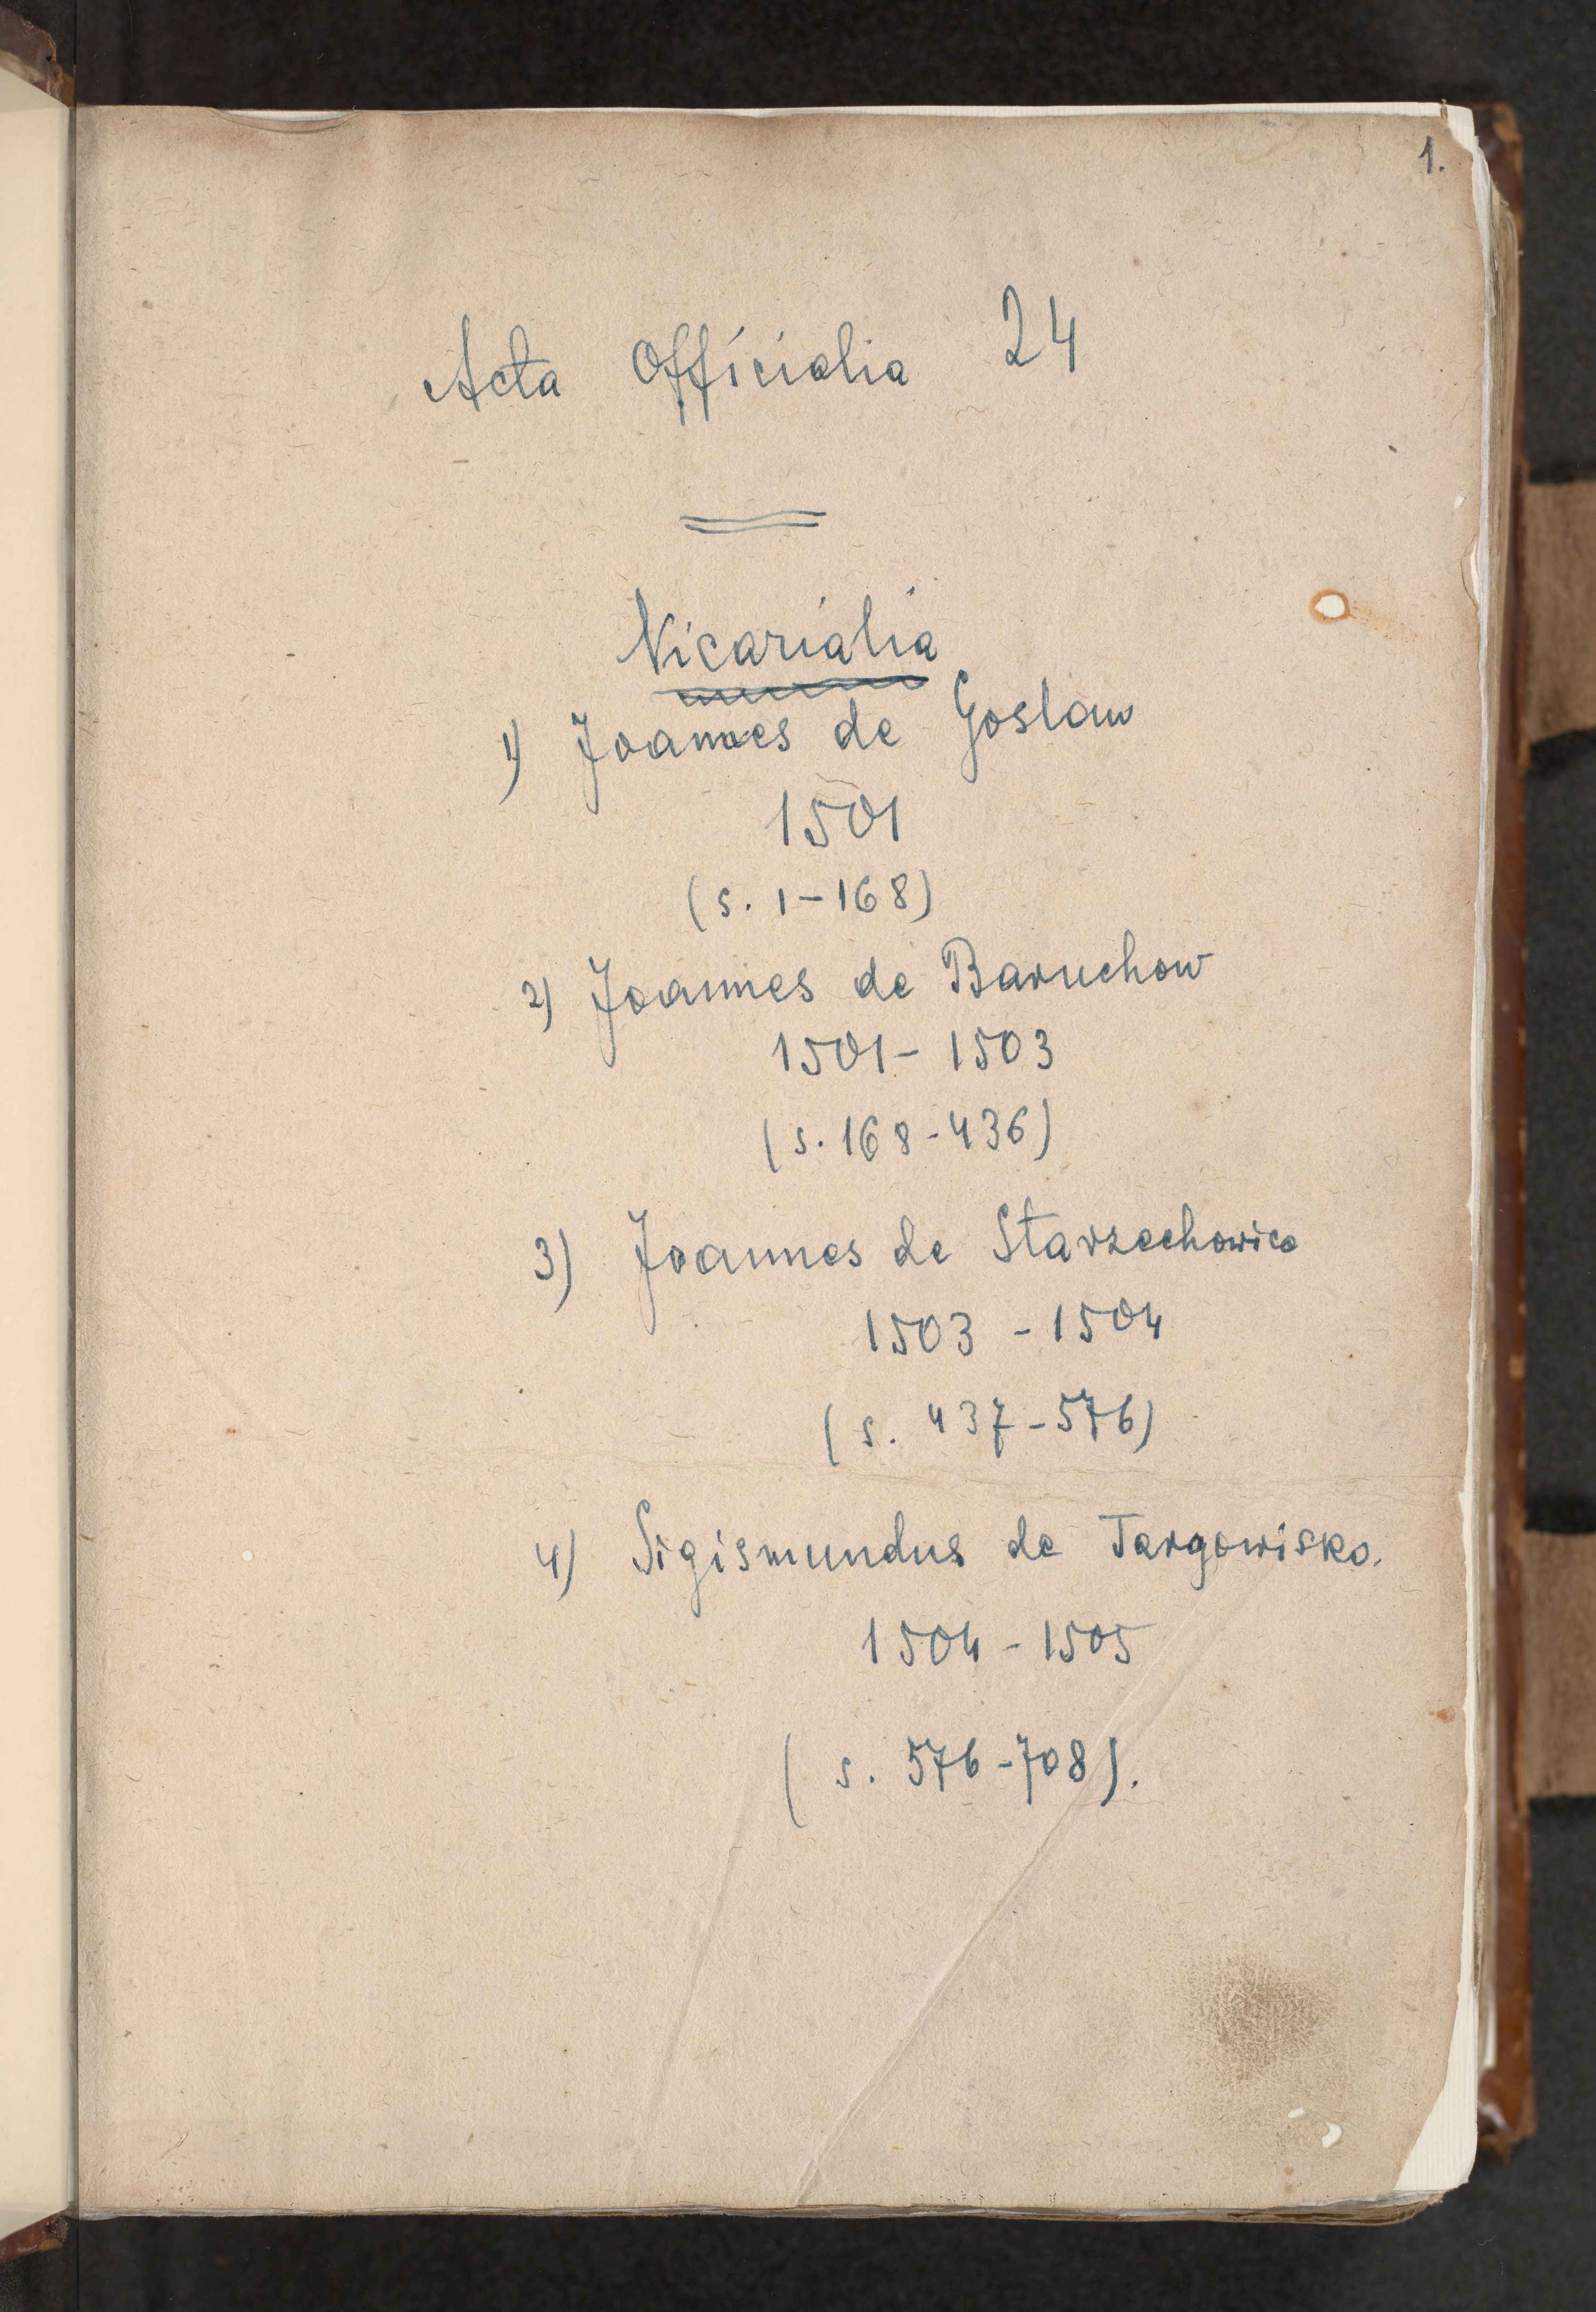 1.
Acta Officialia 24
Vicarialia
1) Joannes de Goslaw
1501
(s. 1-168)
2) Joannes de Baruchow
1501- 1503
(s. 168-436)
3) Joannes de Starzechowice
1503 - 1504
(s. 437-576)
4) Sigismundus de Targowisko.
1504 - 1505
(s. 576-708).